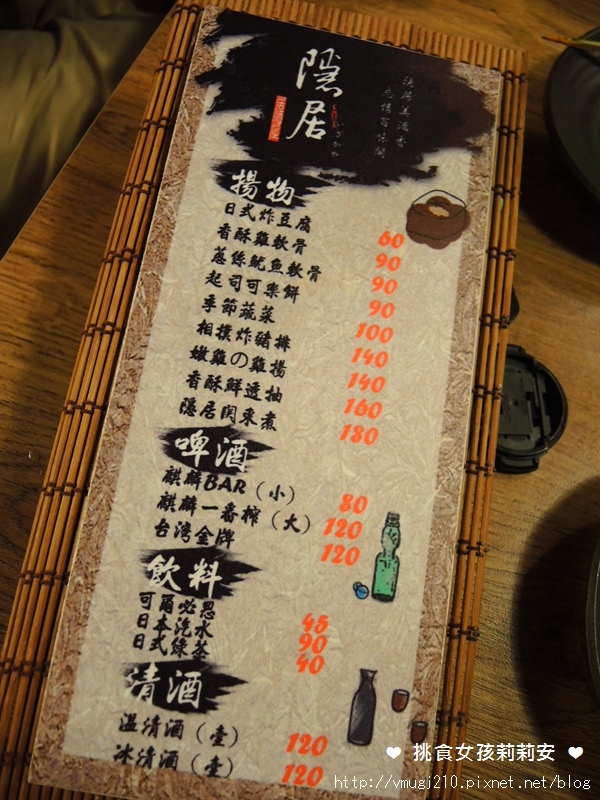 隱居
いざかや
隱居美酒香
心情百味閣
揚物
日式炸豆腐 60
香酥雞軟骨 90
蔥絲魷魚軟骨 90
起司可樂餅 90
季節蔬菜 100
相撲炸豬排 140
嫩雞の雞揚 140
香酥鮮透抽 160
隱居関東煮 180
啤酒
麒麟BAR（小） 80
麒麟一番搾（大） 120
台湾金牌 120
飲料
可爾必思 45
日本汽水 90
日式綠茶 40
清酒
溫清酒（壺） 120
冰清酒（壺） 120
♥ 挑食女孩莉莉安 ♥
http://vmugj210.pixnet.net/blog